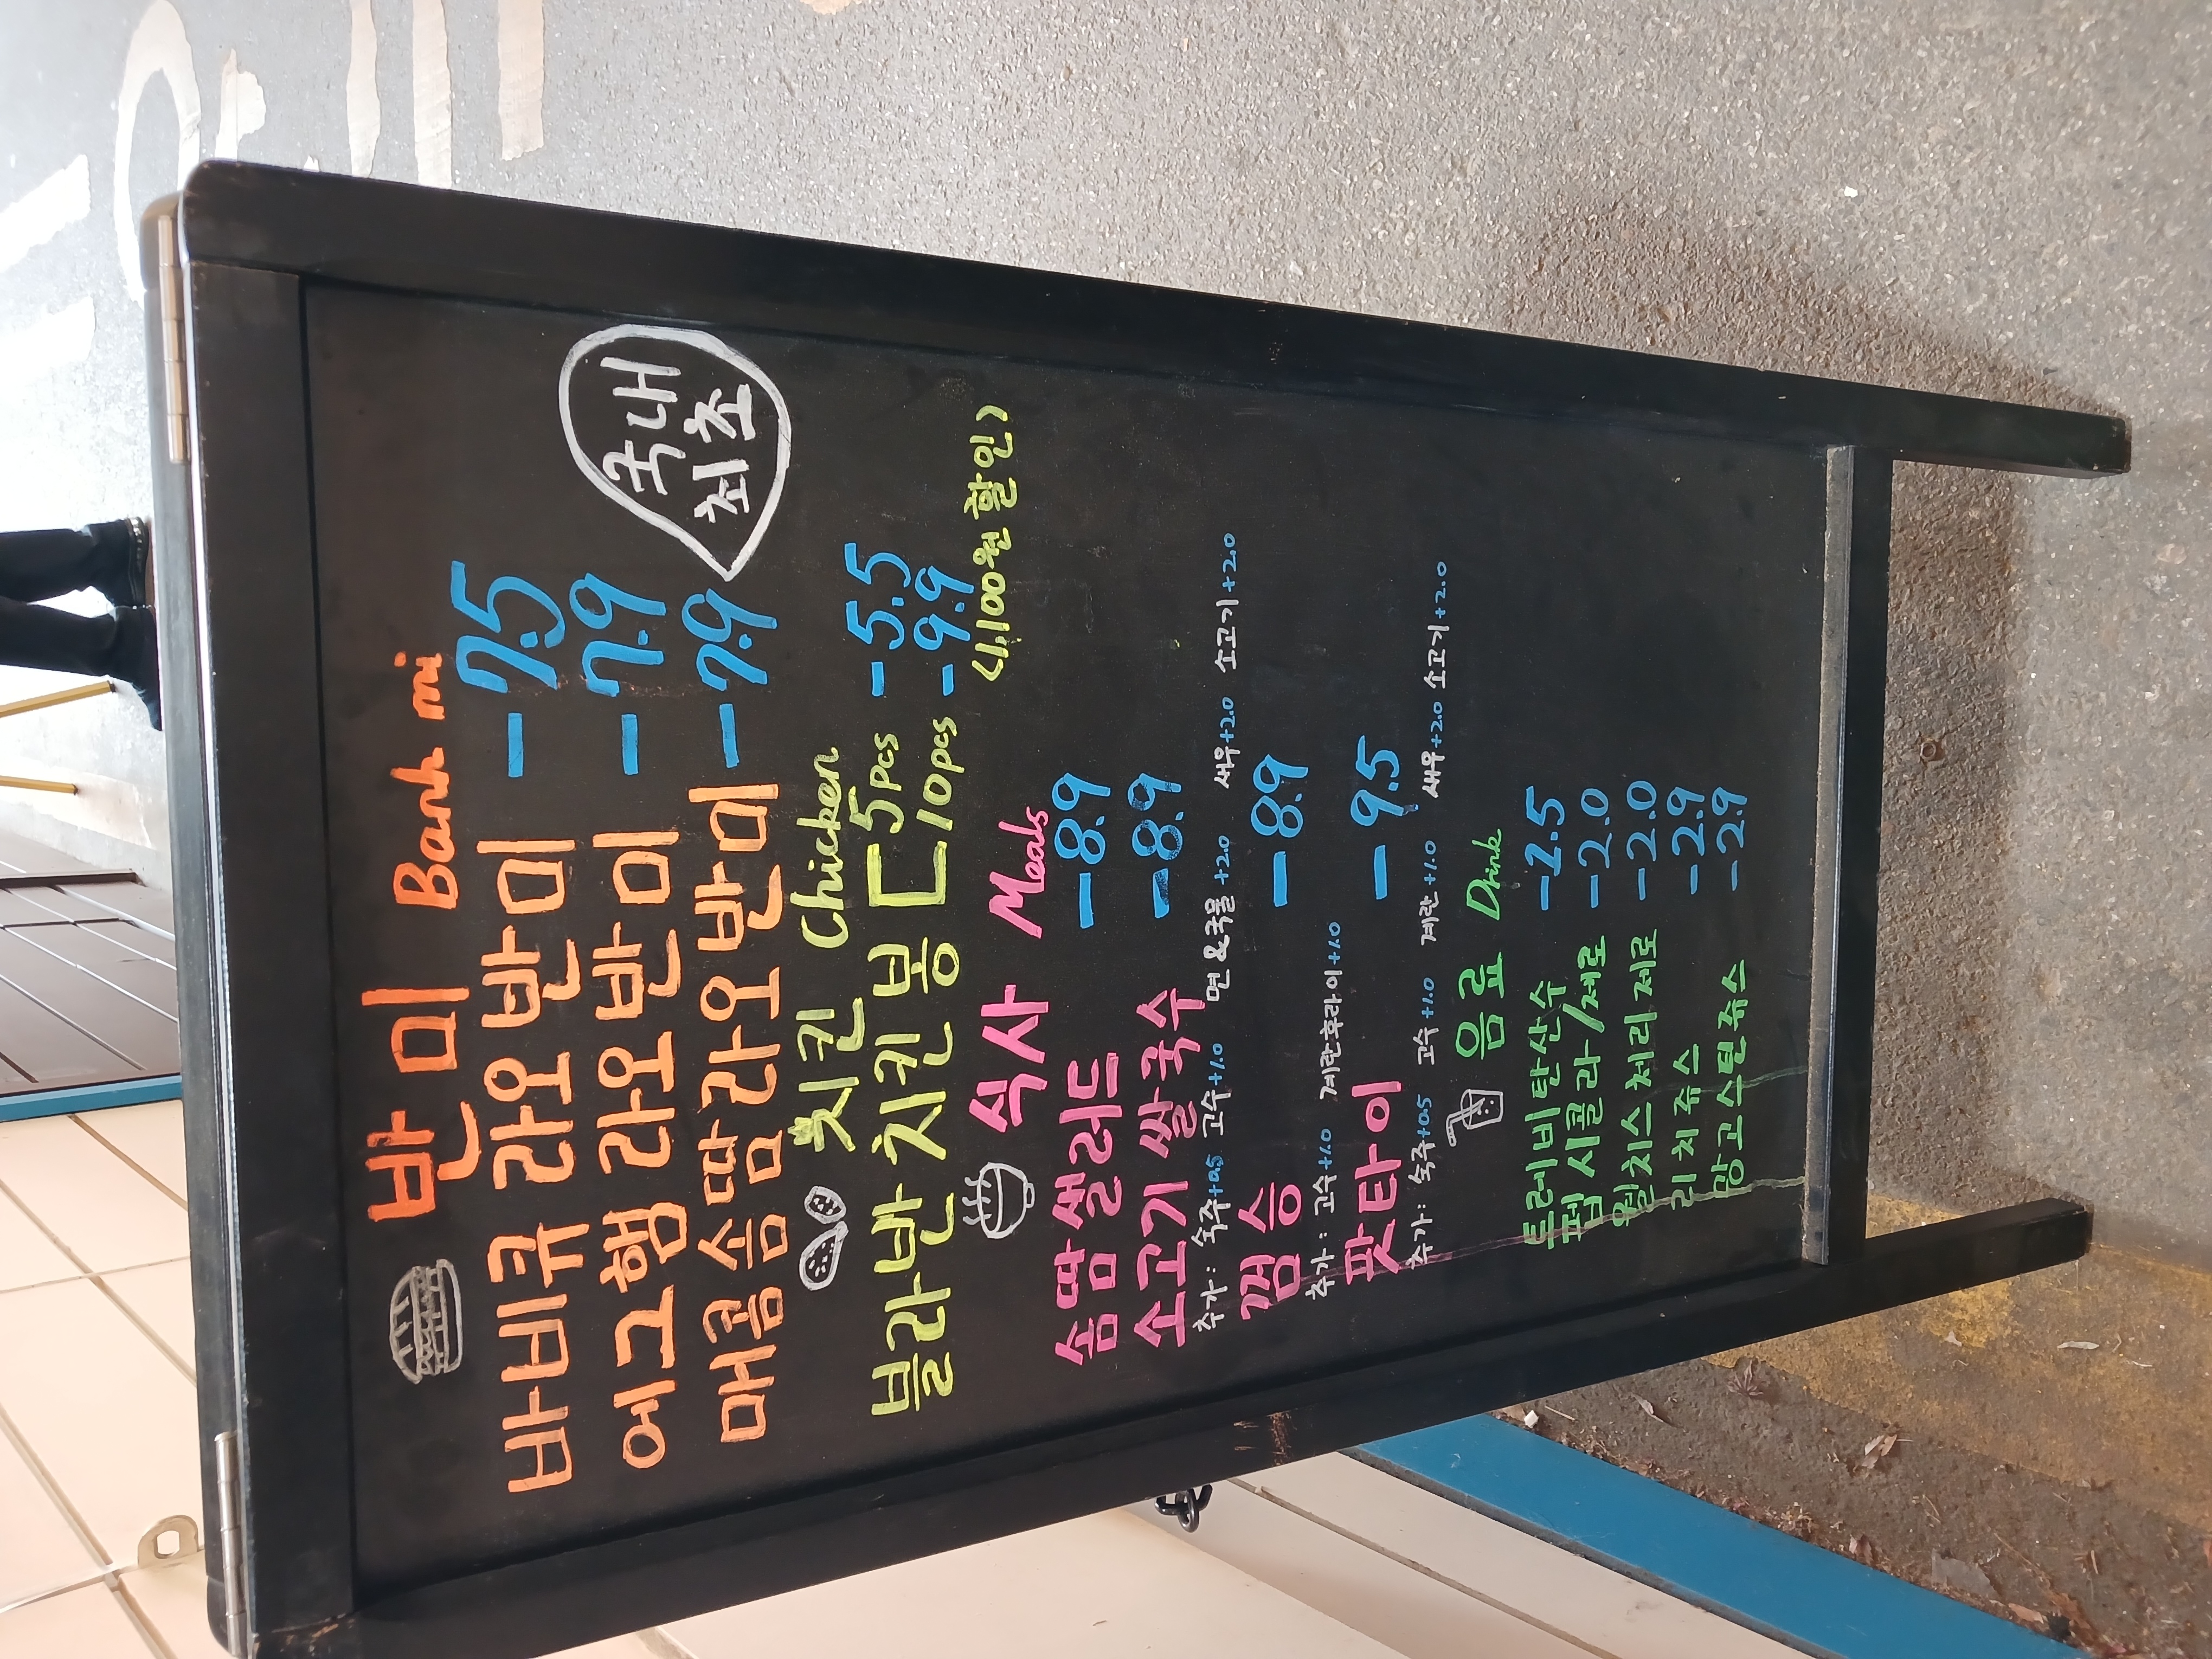 반미 Banh mi
바비큐 라오 반미 - 7.5
에그햄 라오 반미 - 7.9
매콤 솜땀 라오 반미 - 7.9
국내
최초
치킨 Chicken
블라반 치킨 봉 5pcs - 5.5
10pcs - 9.9
(1,100원 할인)
식사 Meals
솜땀 샐러드 - 8.9
소고기 쌀국수 - 8.9
추가: 숙주+0.5 고수+1.0 면&국물+2.0 새우+2.0 소고기+2.0
껌승 - 8.9
추가: 고수+1.0 계란후라이+1.0
팟타이 - 9.5
추가: 숙주+0.5 고수+1.0 계란+1.0 새우+2.0 소고기+2.0
음료 Drink
트레비탄산수 -2.5
펩시콜라/제로 -2.0
웰치스 체리 제로 -2.0
리치쥬스 -2.9
망고스틴쥬스 -2.9